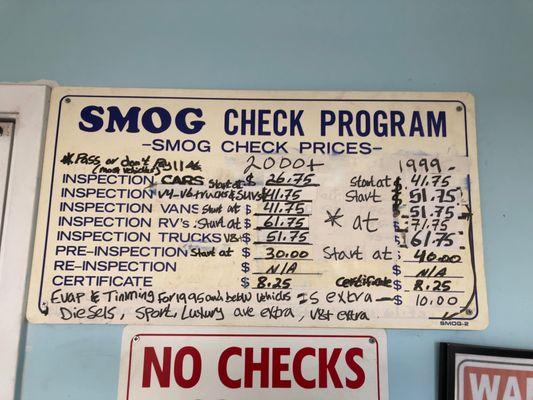 SMOG CHECK PROGRAM
-SMOG CHECK PRICES-
*Pass or don't pay!! * 2000+ 1999-
(most vehicles)
INSPECTION CARS Start at $ 26.75 Start at $ 41.75
INSPECTION V4-V6 trucks & SUVs 41.75 Start $ 51.75
INSPECTION VANS Start at $ 41.75 $ 51.75
INSPECTION RV's. Start at $ 61.75 * at 71.75
INSPECTION TRUCKS V8+ $ 51.75 $ 61.75
PRE-INSPECTION Start at $ 30.00 Start at $ 40.00
RE-INSPECTION $ N/A $ N/A
CERTIFICATE $ 8.25 Certificate $ 8.25
Evap & Timming For 1995 and below vehicles is extra - $ 10.00
Diesels, Sport, Luxury are extra, V8+ extra
SMOG-2
NO CHECKS
WA